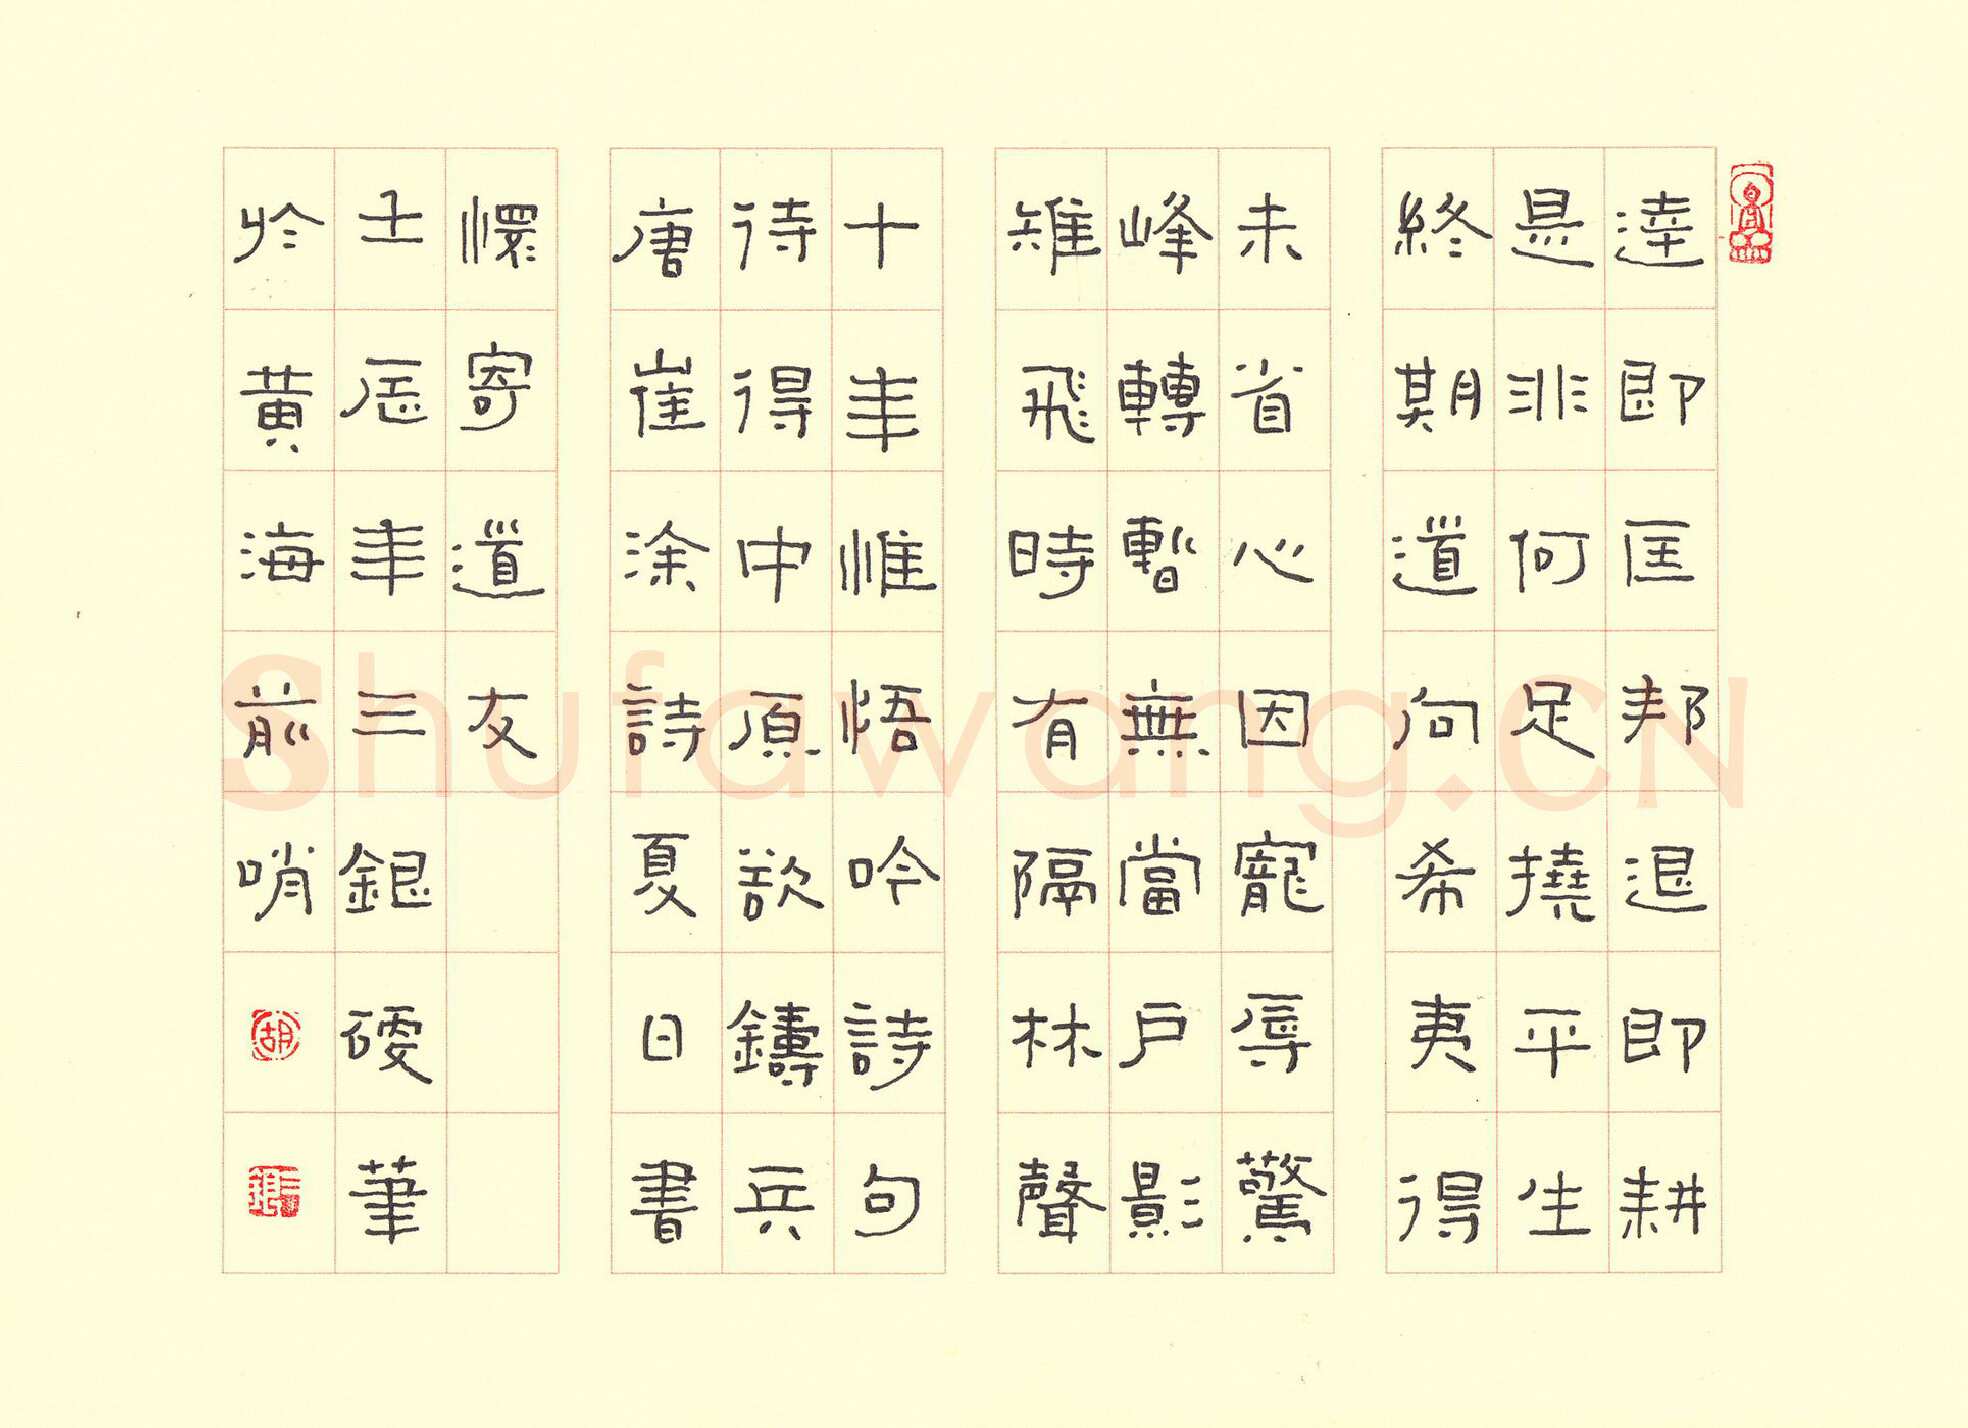 達即匡邦退即耕
是非何足撓平生
終期道向希夷得
未省心因寵辱驚
峰轉暫無當戶影
雉飛時有隔林聲
十年惟悟吟詩句
待得中原欲鑄兵
唐崔涂詩夏日書
懷寄道友
壬辰年三銀硬筆
於黃海前哨
胡
Shufawang.CN